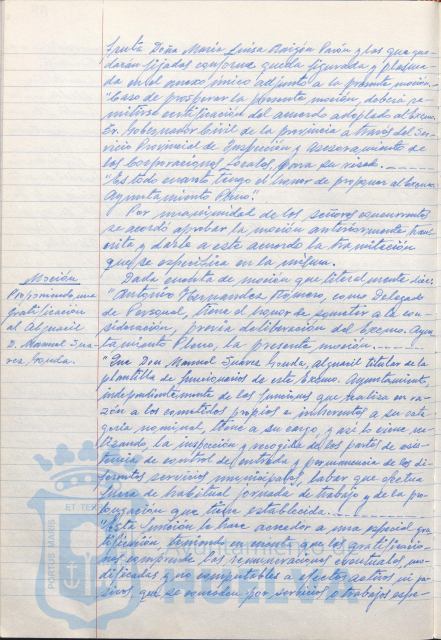 Srta. Doña María Luisa Baizán Pavón y las que que-
darán fijadas conforme queda figurada y plasma-
da en el anexo único adjunto a la presente moción.
"Caso de prosperar la presente moción, deberá re-
mitirse certificación del acuerdo adoptado al Excmo.
Sr. Gobernador Civil de la provincia a través del Ser-
vicio Provincial de Inspección y Asesoramiento de
las Corporaciones Locales, para su visado.
"Es todo cuanto tengo el honor de proponer al Excmo.
Ayuntamiento Pleno".
Por unanimidad de los señores concurrentes
se acordó aprobar la moción anteriormente trans-
crita y darle a este acuerdo la tramitación
que se especifica en la misma.
Moción
Proponiendo una
gratificación
al Alguacil
D. Manuel Suá-
rez
Dada cuenta de moción que literalmente dice:
"Antonio Fernández Romero, como Delegado
de Personal, tiene el honor de someter a la con-
sideración, previa deliberación del Excmo. Ayun-
tamiento Pleno, la presente moción.
"Que Don Manuel Suárez alguacil titular de la
plantilla de funcionarios de este Excmo. Ayuntamiento,
independientemente de las funciones que realiza en ra-
zón a los cometidos propios e inherentes a su cate-
goría nominal, tiene a su cargo, y así lo viene re-
alizando la inspección y recogida de los partes de asis-
tencia de control de entrada y permanencia de los di-
ferentes servicios municipales, labor que efectúa
fuera de habitual jornada de trabajo y de la pro-
longación que tiene establecida.
"Esta función le hace acreedor a una especial gra-
tificación, teniendo en cuenta que las gratificacio-
nes comprende las remuneraciones eventuales, no
dificadas y no computables a efectos activos ni pa-
sivos, que se conceden por servicios o trabajos espe-
PORTUS MARIS
ET TER
Ayuntamiento de
HUELVA